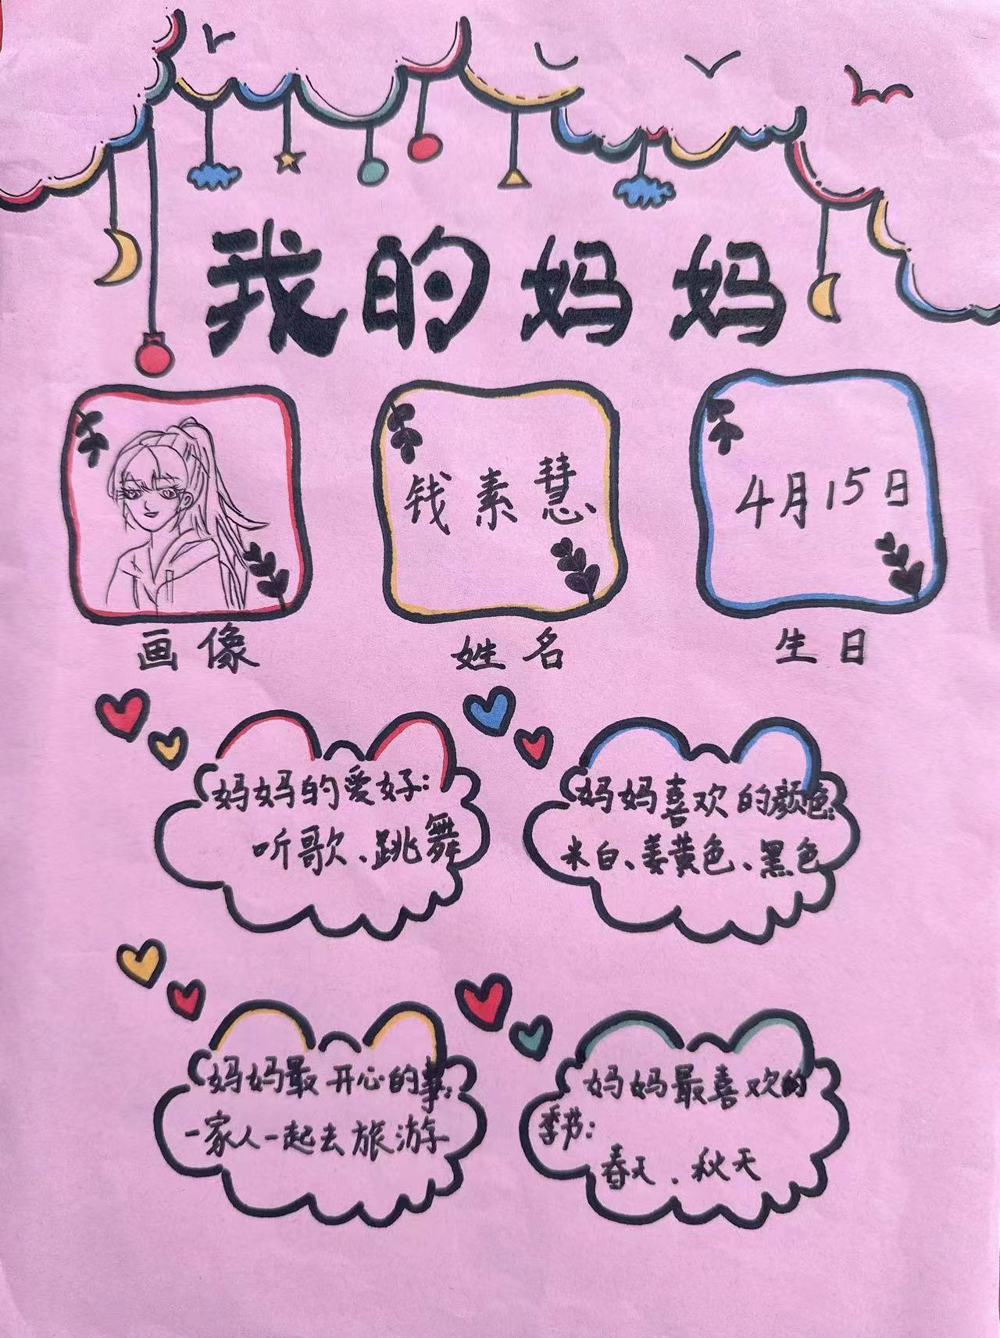 我的妈妈
钱素慧
4月15日
画像
姓名
生日
妈妈的爱好:
听歌、跳舞
妈妈喜欢的颜色:
米白、姜黄色、黑色
妈妈最开心的事:
一家人一起去旅游
妈妈最喜欢的
季节:
春天、秋天